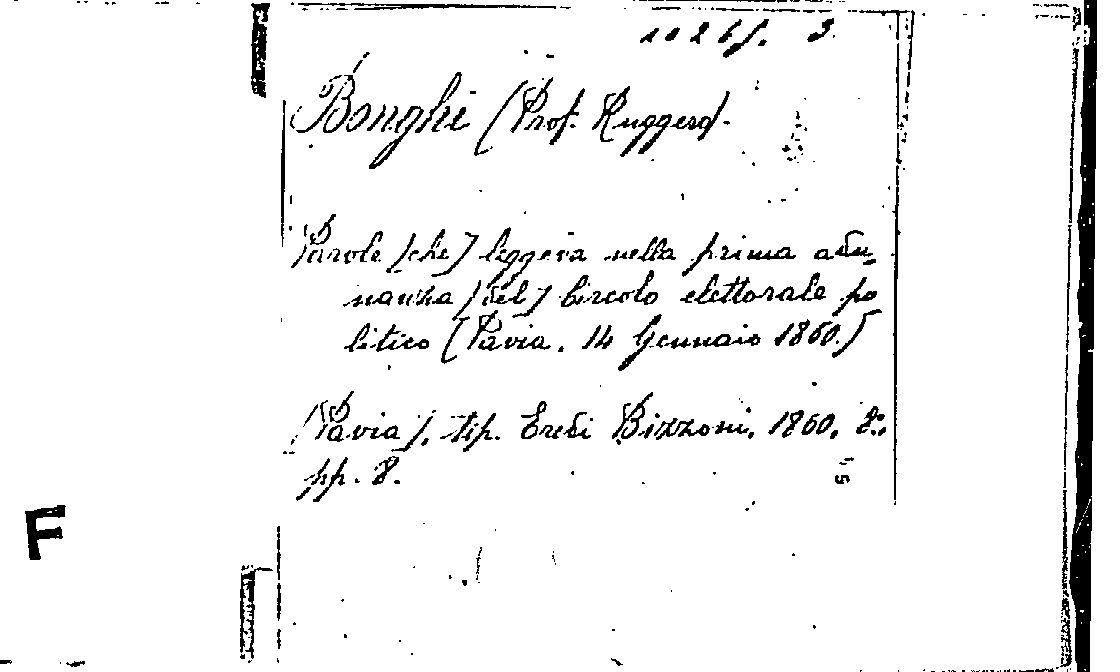 1026/. 3
Bonghi (Prof. Ruggero).
Parole [che] leggeva nella prima adu-
nanza [del] Circolo elettorale po
litico (Pavia, 14 Gennaio 1860.)
(Pavia), tip. Eredi Bizzoni, 1860, 8.°,
pp. 8.
F